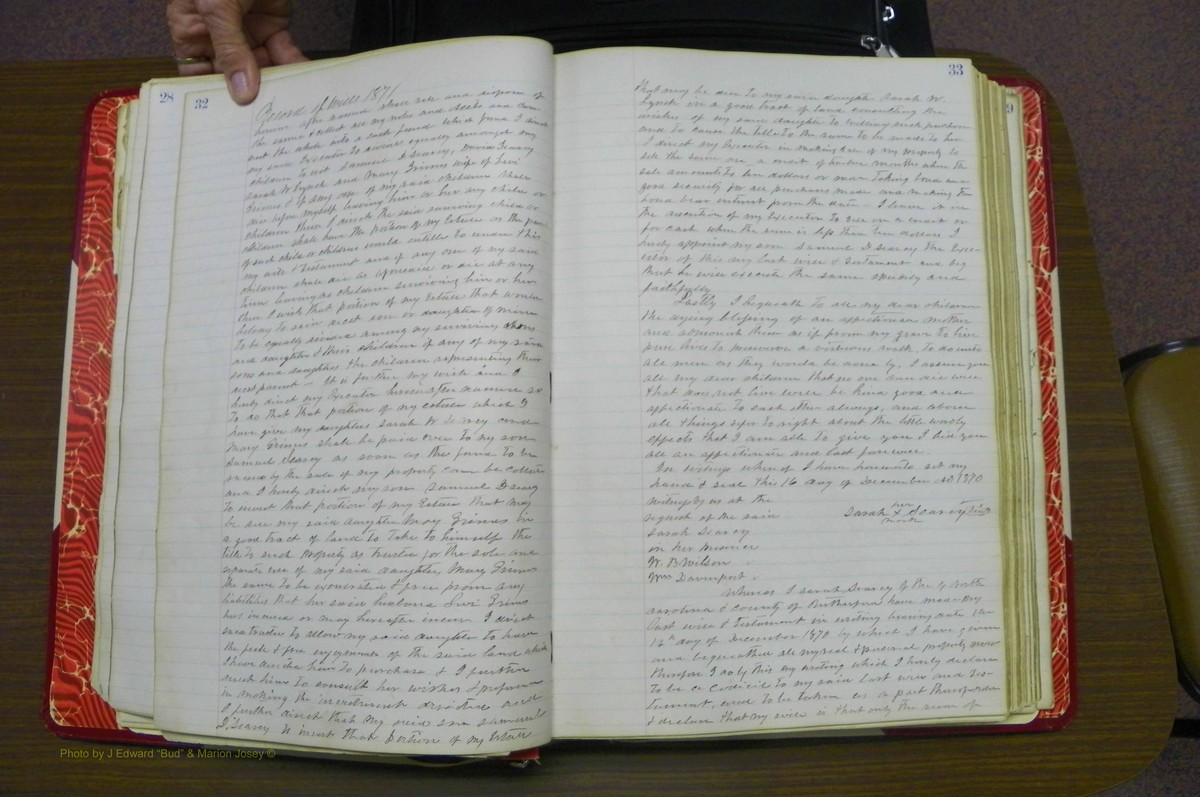 28
32
Record of Wills 1871
herein after named shall sell and dispose of
the same & collect all my notes and debts and con
vert the whole into a cash fund which fund I direct
my said Executor to divide equally amongst my
children to wit Samuel D Searcy,
Sarah W Lynch and Mary Grimes wife of Levi
Grimes & if any one of my said children shall
die before myself leaving him or her any child or
children then I direct the said surviving child or
children shall have the portion of my Estate as the parent
of such child or children would entitled to under this
my will & Testament and if any one of my said
children shall die as aforesaid or die at any
time leaving no children surviving him or her
then I wish that portion of my Estate that would
belong to said dec'd son or daughter of mine
To be equally divided among my surviving sons
and daughters & the children of any of my said
sons and daughters the children representing their
dec'd parent - It is further my wish and I
hereby direct my Executor hereinafter named so
To do that that portion of my estate which I
have give my daughters Sarah W and
Mary Grimes shall be paid over to my son
Samuel Searcy as soon as the funds to be
raised by the sale of my property can be collected
and I hereby direct my son Samuel D Searcy
to invest that portion of my Estate that may
be due my said daughter Mary Grimes in
a good tract of land to Take to himself the
title to such Property as trustee for the sole and
separate use of my said daughter Mary Grimes
the same to be exonerated & free from any
liabilities that her said husband Levi Grimes
has incured or may hereafter incur I direct
said trustee to allow my said daughter to have
the full & free enjoyment of the said land which
I have directed him to purchase & I further
direct him to consult her wishes &
in making the investment directed and
I further direct that my said son Samuel
D Searcy to invest that portion of my Estate
33
9
that may be due to my said daughter Sarah W.
Lynch in a good tract of land consulting the
wishes of my said daughter to making such purchase
and to cause the title to the same to be made to her
I direct my Executor in making sale of my property to
sell the same on a credit of twelve months when the
sale amounts to ten dollars or more Taking bond and
good security for all purchases made and making the
bonds bear interest from the date - I leave it in
the discretion of my Executor to sell on a credit or
for cash when the sum is less than ten dollars I
hereby appoint my son Samuel D Searcy the Exec-
utor of this my last will & Testament and beg
that he will execute the same speedily and
faithfully
Lastly I bequeath to all my dear children
the dying blessing of an affectionate mother
and admonish them as if from my grave to live
pure lives to a virtuous walk, to do unto
all men as they would be done by, I assure you
all my dear children that no one can die well
that does not live well be kind good and
affectionate to each other always, and above
all things upright about the little worldly
effects that I am able to give you I bid you
all an affectionate and last farewell.
In testimony whereof I have hereunto set my
hand & seal this 16 day of December AD 1870
Witness by us at the
request of the said
Sarah her x mark Searcy Seal
Sarah Searcy
in her presence
W. B. Wilson
Wm Davenport.
Whereas I Sarah Searcy of the of North
Carolina & county of Rutherford have made my
last will & testament in writing bearing date the
16th day of December 1870 by which I have given
and bequeathed all my real & personal property now
therefore I do by this my writing which I hereby declare
To be a codicil to my said last will and tes-
tament, and to be taken as a part thereof order
& declare that my will is that only the sum of
Photo by J Edward "Bud" & Marion Josey ©